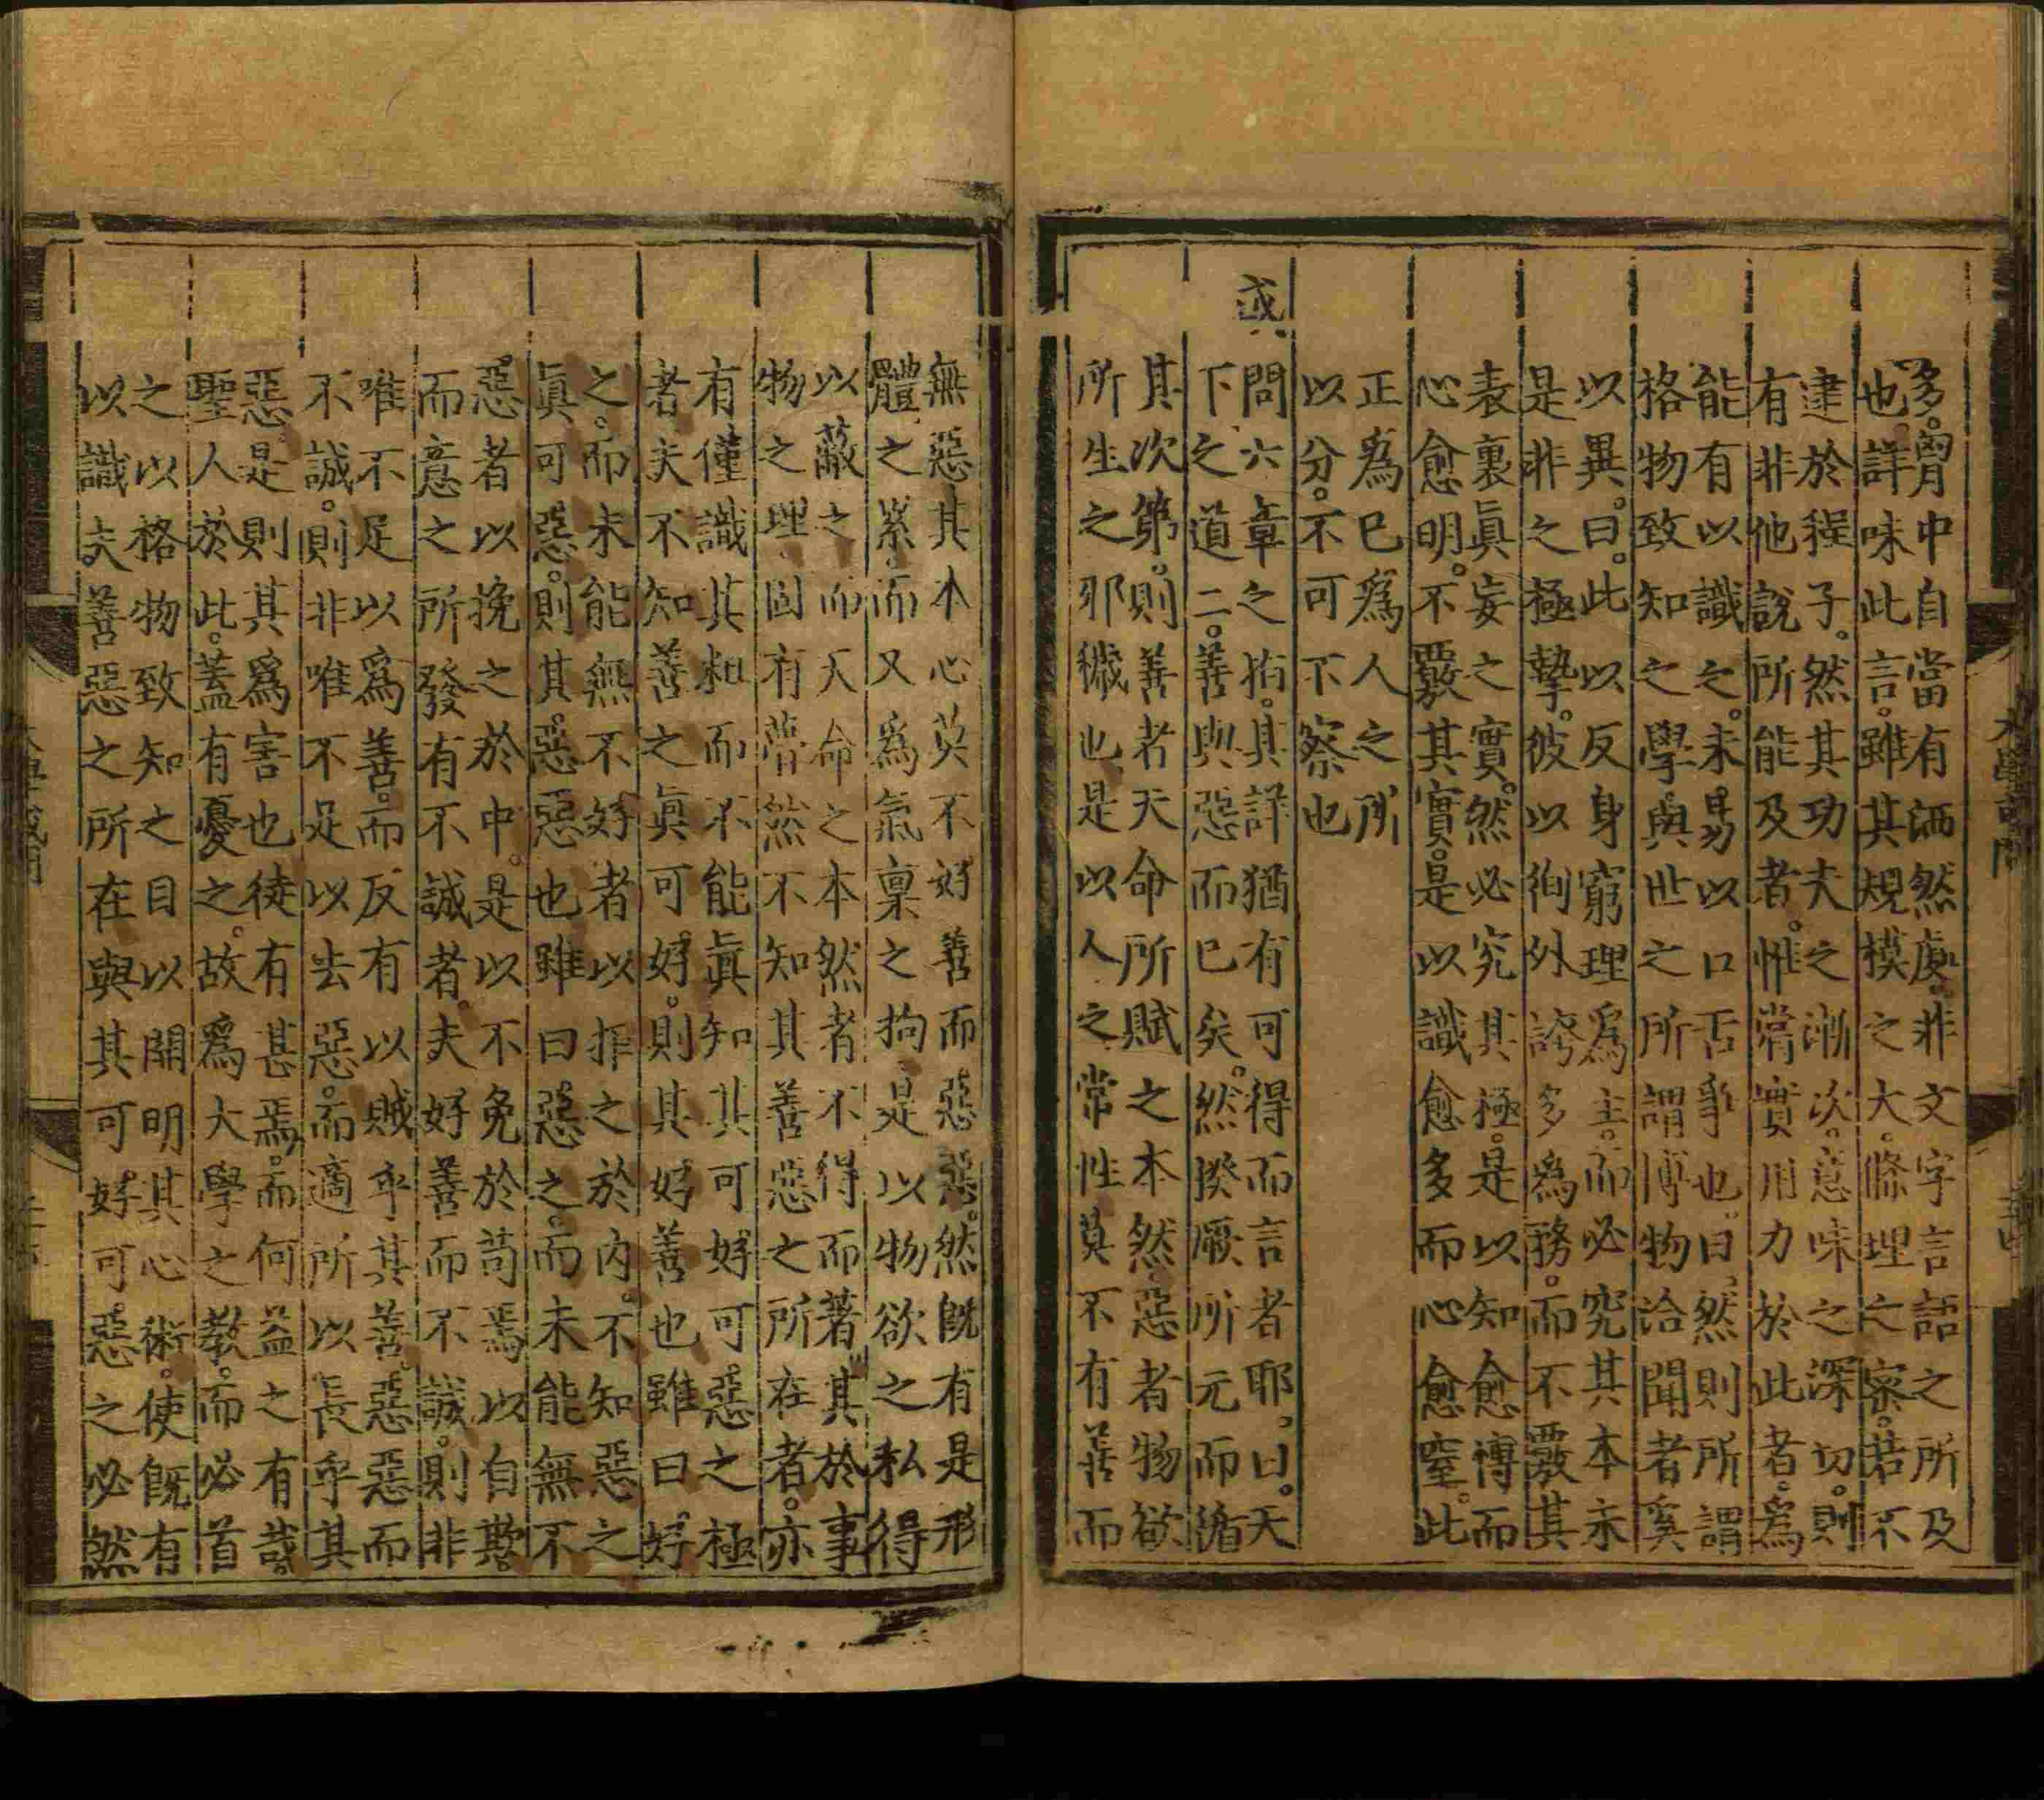 多。胷中自當有洒然處。非文字言語之所及
也。詳味此言。雖其規模之大。條理之密。若不
逮於程子。然其功夫之漸次。意味之深切。則
有非他說所能及者。惟常實用力於此者。爲
能有以識之。未易以口舌爭也。曰。然則所謂
格物致知之學。與世之所謂博物洽聞者奚
以異。曰。此以反身窮理爲主。而必究其本末
是非之極摯。彼以徇外誇多爲務。而不覈其
表裏眞妄之實。然必究其極。是以知愈博而
心愈明。不覈其實。是以識愈多而心愈窒。此
正爲已爲人之所
以分。不可不察也
或問六章之指。其詳猶有可得而言者耶。曰。天
下之道二。善與惡而已矣。然揆厥所元而循
其次第。則善者天命所賦之本然。惡者物欲
所生之邪穢也是以人之常性莫不有善而
無惡其本心莫不好善而惡惡。然旣有是形
體之累。而又爲氣稟之拘是以物欲之私得
以蔽之而天命之本然者不得而著其於事
物之理。固有瞢然不知其善惡之所在者。亦
有僅識其粗而不能眞知其可好可惡之極
者夫不知善之眞可好。則其好善也雖曰。好
之。而未能無不好者以拒之於內。不知惡之
眞可惡。則其惡惡也雖曰惡之。而未能無不
惡者以挽之於中。是以不免於苟焉以自欺。
而意之所發有不誠者。夫好善而不誠。則非
唯不足以爲善。而反有以賊乎其善。惡惡而
不誠。則非唯不足以去惡。而適所以長乎其
惡。是則其爲害也徒有甚焉。而何益之有哉。
聖人於此。蓋有憂之。故爲大學之教。而必首
之以格物致知之目以開明其心術。使旣有
以識夫善惡之所在與其可好可惡之必然
大學或問